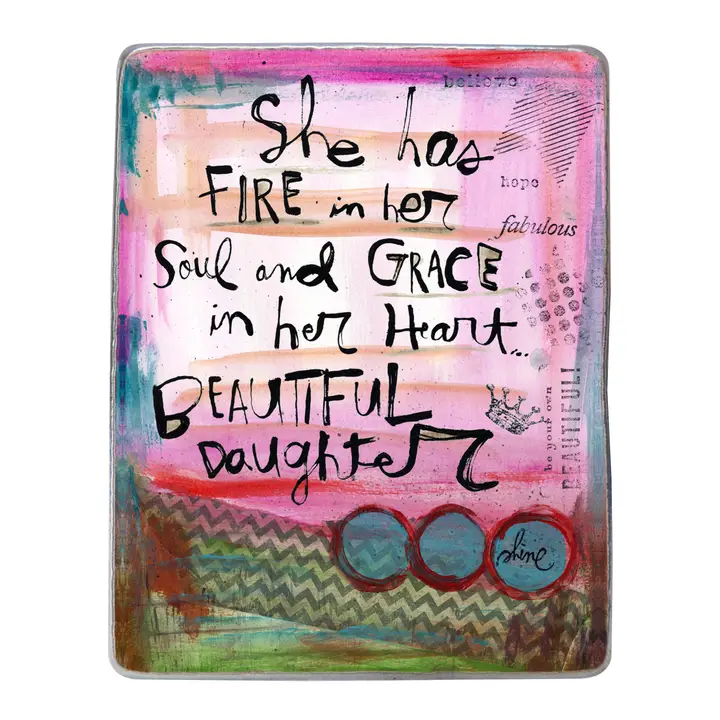 believe
She has
FIRE in her
hope
fabulous
Soul and GRACE
in her Heart...
BEAUTIFUL
Daughter
be your own
BEAUTIFUL!
shine